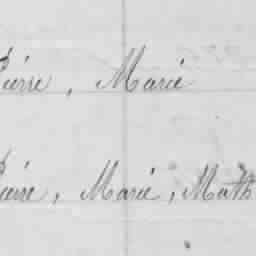 Pierre, Marie
Pierre, Marie, Math